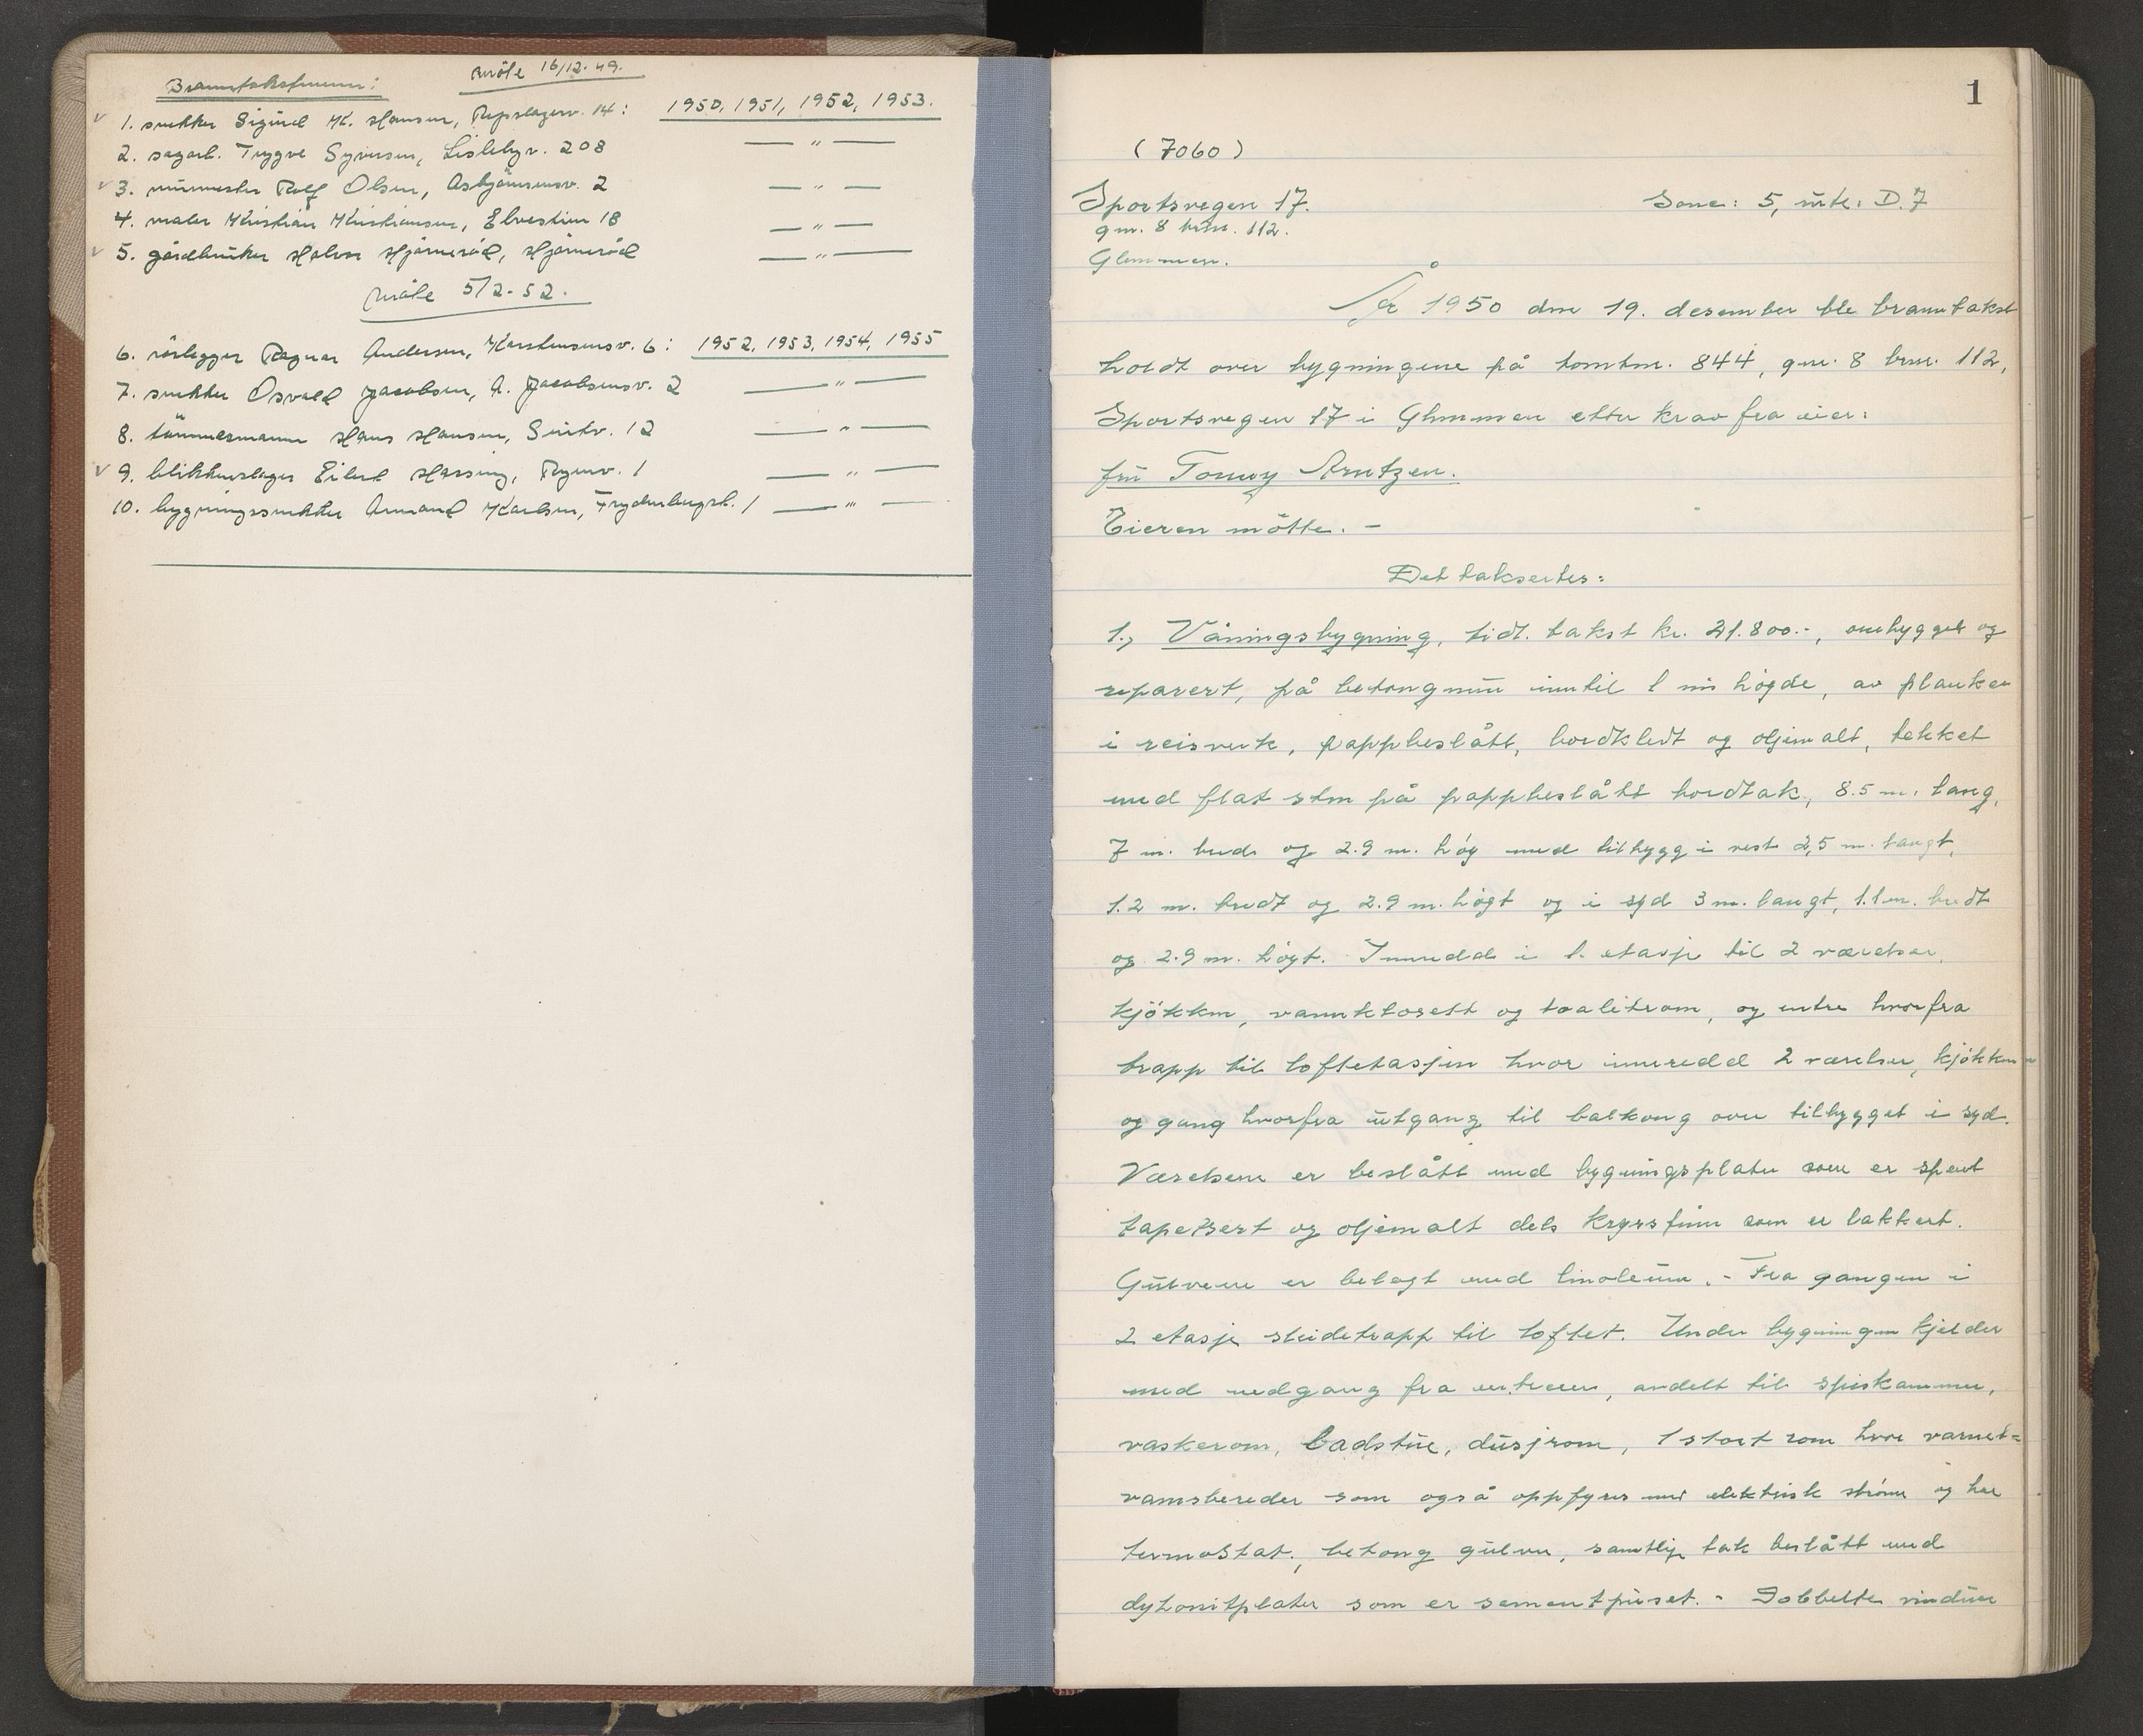 Branntakstmenn:
Møte 16/12-49.
1. snekker Sigurd K. Hansen, Repslagerv. 14: 1950, 1951, 1952, 1953.
2. sagarb. Trygve Syversen, Lislebyv. 208 — " —
3. murmester Rolf Olsen, Asbjørnsensv. 2 — " —
4. maler Kristian Kristiansen, Elvestien 18 — " —
5. gårdbruker Halvor Hjørnerød, Hjørnerød — " —
Møte 5/2-52.
6. rørlegger Ragnar Andersen, Karstensensv. 6: 1952, 1953, 1954, 1955
7. snekker Osvald Jacobsen, A. Jacobsensv. 2 — " —
8. tømmermann Hans Hansen, 12 — " —
9. blikkenslager Eilert Hassing, Rynv. 1 — " —
10. bygningssnekker Armand Karlsen, Frydenbergst. 1 — " —
1
(7060)
Sportsvegen 17. Sone: 5, utk: D.7
gnr. 8 brnr. 112.
Glemmen.
År 1950 den 19. desember ble branntakst
holdt over bygningene på tomtnr. 844, gnr. 8 brnr. 112,
Sportsvegen 17 i Glemmen etter krav fra eier:
fru Tonny Arntzen.
Eieren møtte. -
Det taksertes:
1., Våningsbygning, tidl. takst kr. 21.800.-, ombygget og
reparert, på betongmur inntil 1 m høgde, av planker
i reisverk, pappbeslått, bordkledt og oljemalt, tekket
med flat sten på pappbeslått bordtak, 8.5 m. lang,
7 m. bred og 2.9 m. høg med tilbygg i vest 2,5 m. langt,
1.2 m. bredt og 2.9 m. høgt og i syd 3 m. langt, 1.1 m. bredt
og 2.9 m. høgt. Innredd i 1. etasje til 2 værelser,
kjøkken, vannklosett og toalettrom, og entre hvorfra
trapp til loftetasjen hvor innredd 2 værelser, kjøkken
og gang hvorfra utgang til balkong over tilbygget i syd.
Værelsene er beslått med bygningsplater som er spent
tapetsert og oljemalt dels kryssfiner som er lakkert.
Gulvene er belagt med linoleum. - Fra gangen i
2 etasje steidetrapp til loftet. Under bygningen kjelder
med nedgang fra entreen, avdelt til spiskammer,
vaskerom, badstue, dusjrom, 1 stort rom hvor varmt=
vannsbereder som også oppfyres med elektrisk strøm og har
termostat, betong gulver, samtlige tak beslått med
dytonitplater som er sementpusset. - Dobbelte vinduer